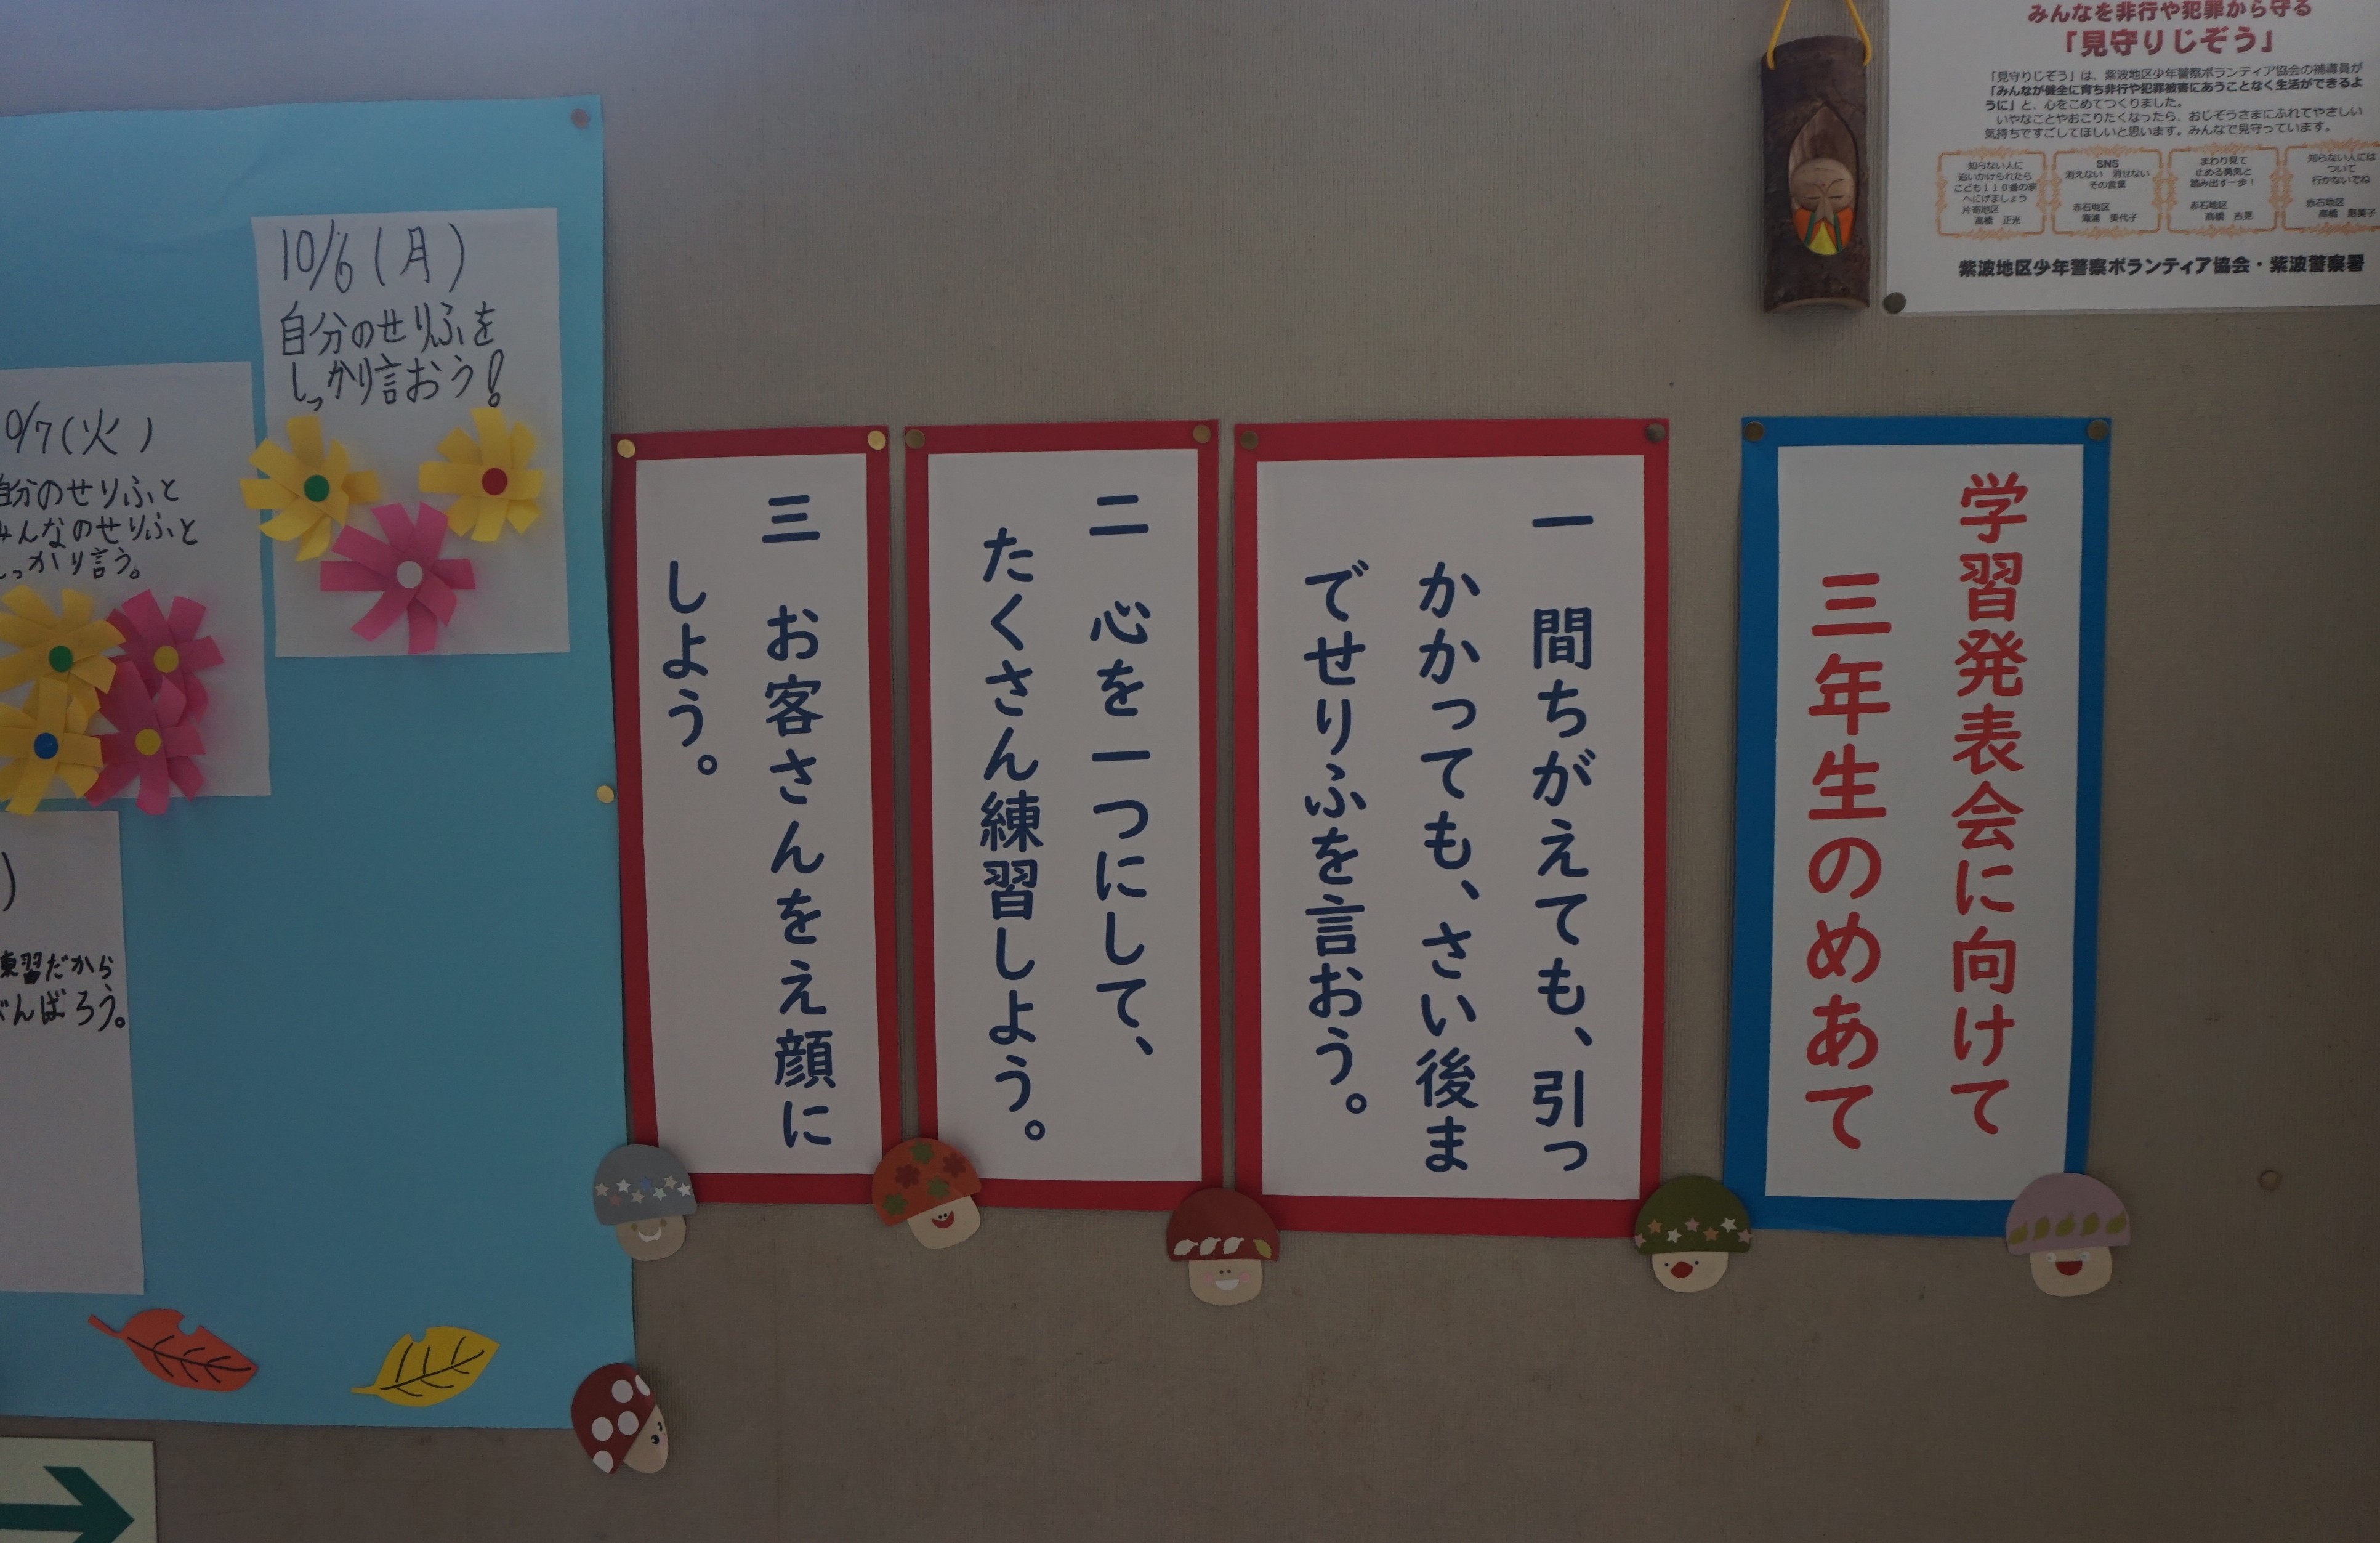 みんなを非行や犯罪から守る
「見守りじぞう」
「見守りじぞう」は、紫波地区少年警察ボランティア協会の補導員が
「みんなが健全に育ち非行や犯罪被害にあうことなく生活ができるよ
うに」と、心をこめてつくりました。
いやなことやおこりたくなったら、おじぞうさまにふれてやさしい
気持ちですごしてほしいと思います。みんなで見守っています。
知らない人に
追いかけられたら
こども110番の家
へにげましょう
片寄地区
高橋 正光
SNS
消えない 消せない
その言葉
赤石地区
滝浦 美代子
まわり見て
止める勇気と
踏み出す一歩！
赤石地区
高橋 吉見
知らない人には
ついて
行かないでね
赤石地区
高橋 恵美子
紫波地区少年警察ボランティア協会・紫波警察署
学習発表会に向けて
三年生のめあて
一 間ちがえても、引っ
かかっても、さい後ま
でせりふを言おう。
二 心を一つにして、
たくさん練習しよう。
三 お客さんをえ顔に
しよう。
10/6(月)
自分のせりふを
しっかり言おう!
0/7(火)
自分のせりふと
みんなのせりふと
しっかり言う。
)
練習だから
がんばろう。